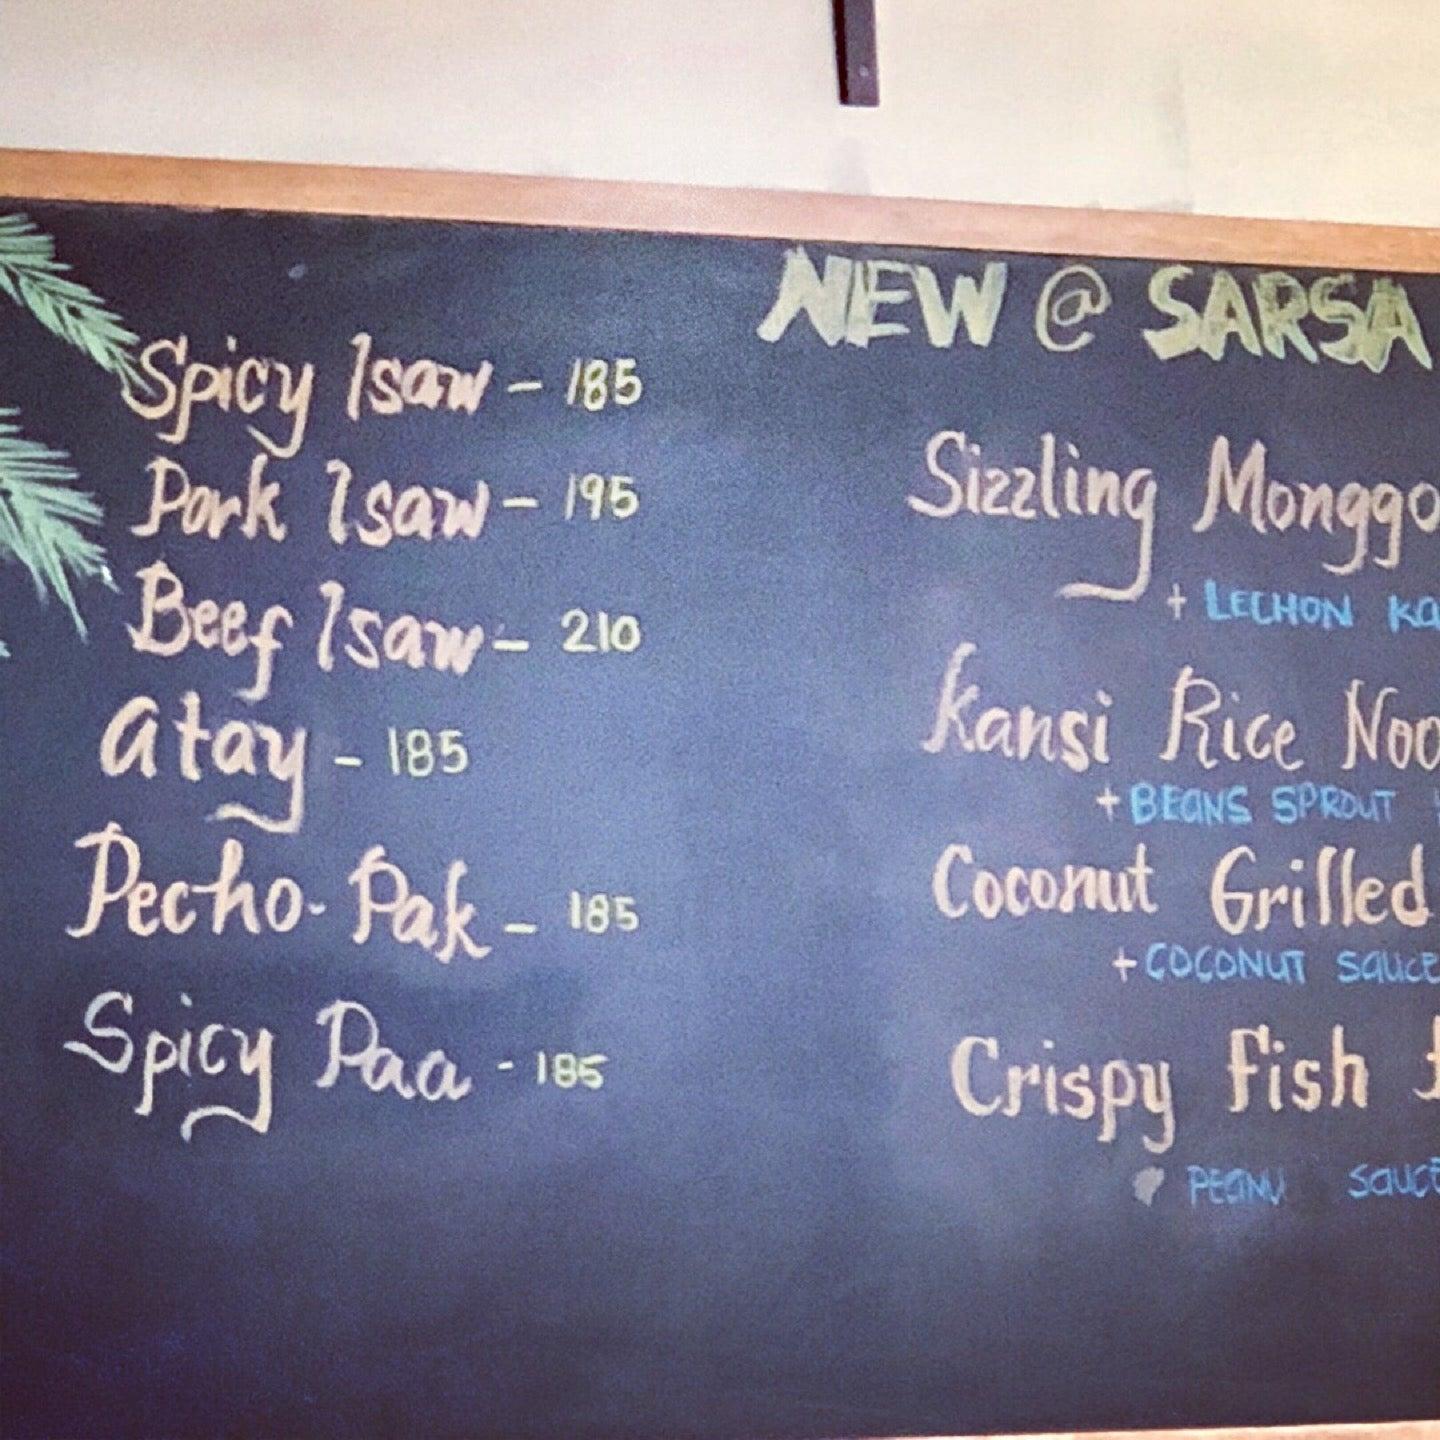 Spicy Isaw - 185
Pork Isaw - 195
Beef Isaw - 210
atay - 185
Pecho-Pak - 185
Spicy Paa - 185
NEW @ SARSA
Sizzling Monggo
+ LECHON
Kansi Rice
+ BEANS SPROUT
Coconut Grilled
+ COCONUT SAUCE
Crispy Fish
PEANU SAUCE